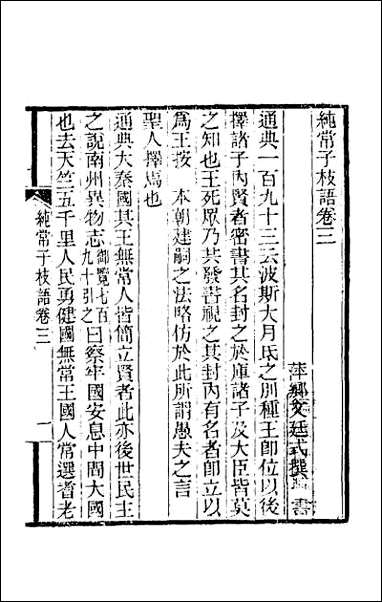 純常子枝語卷三
萍鄉文廷式撰
通典一百九十三云波斯大月氐之別種王卽位以後
擇諸子內賢者密書其名封之於庫諸子及大臣皆莫
之知也王死眾乃共發書視之其封內有名者卽立以
爲王按 本朝建嗣之法略仿於此所謂愚夫之言
聖人擇焉也
通典大秦國其王無常人皆簡立賢者此亦後世民主
之說南州異物志御覽七百九十引之曰察牢國安息中間大國
也去天竺五千里人民勇健國無常王國人常選耆老
純常子枝語卷三
一